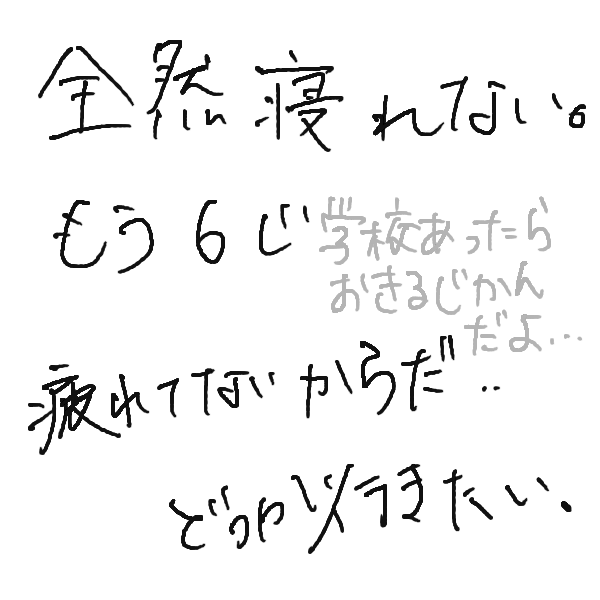 全然寝れない。
もう6じ
学校あったら
おきるじかん
だよ...
疲れてないからだ..
どっか行きたい.